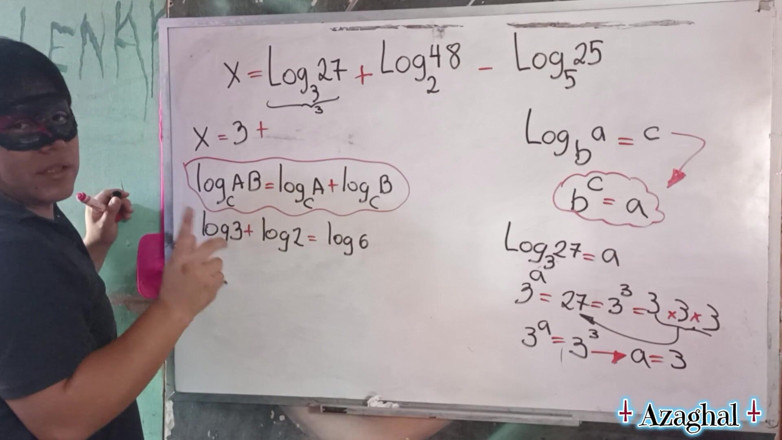 LENKA
X = Log₃27 + Log₂48 - Log₅25
3
X = 3 +
log_c AB = log_c A + log_c B
log3 + log2 = log6
Log_b a = c
b^c = a
Log₃27 = a
3^a = 27 = 3³ = 3 × 3 × 3
3^a = 3³ → a = 3
Azaghal